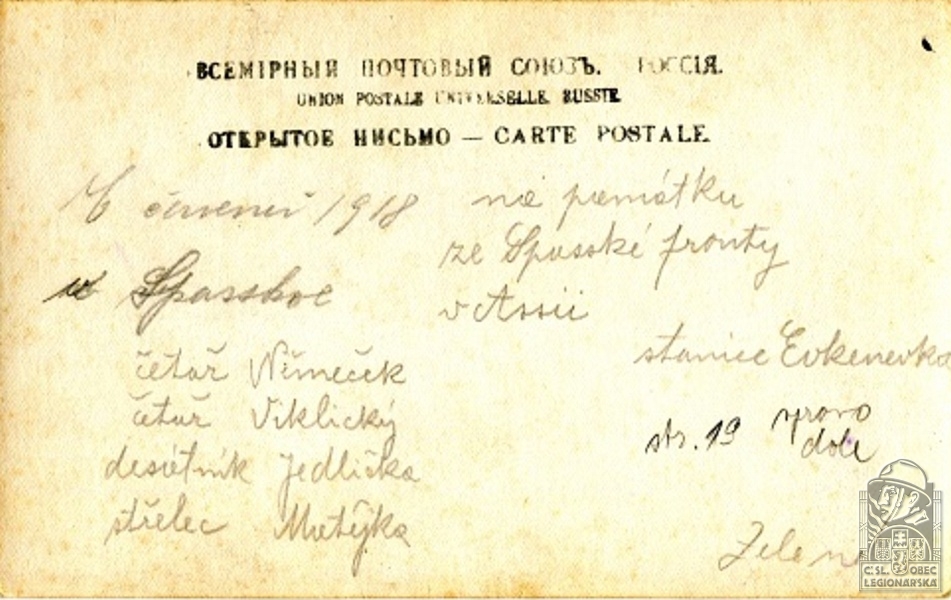 ВСЕМІРНЫЙ ПОЧТОВЫЙ СОЮЗЪ. РОССІЯ.
UNION POSTALE UNIVERSELLE. RUSSIE
ОТКРЫТОЕ ПИСЬМО — CARTE POSTALE.
červenec 1918
Spasskoe
četař Němeček
četař Viklický
desátník Jedlička
střelec Matějka
na památku
ze Spasské fronty
v Assii
stanice Evkenevka
str. 19 vpravo
dole
Zelen
ČSL. OBEC
LEGIONÁŘSKÁ